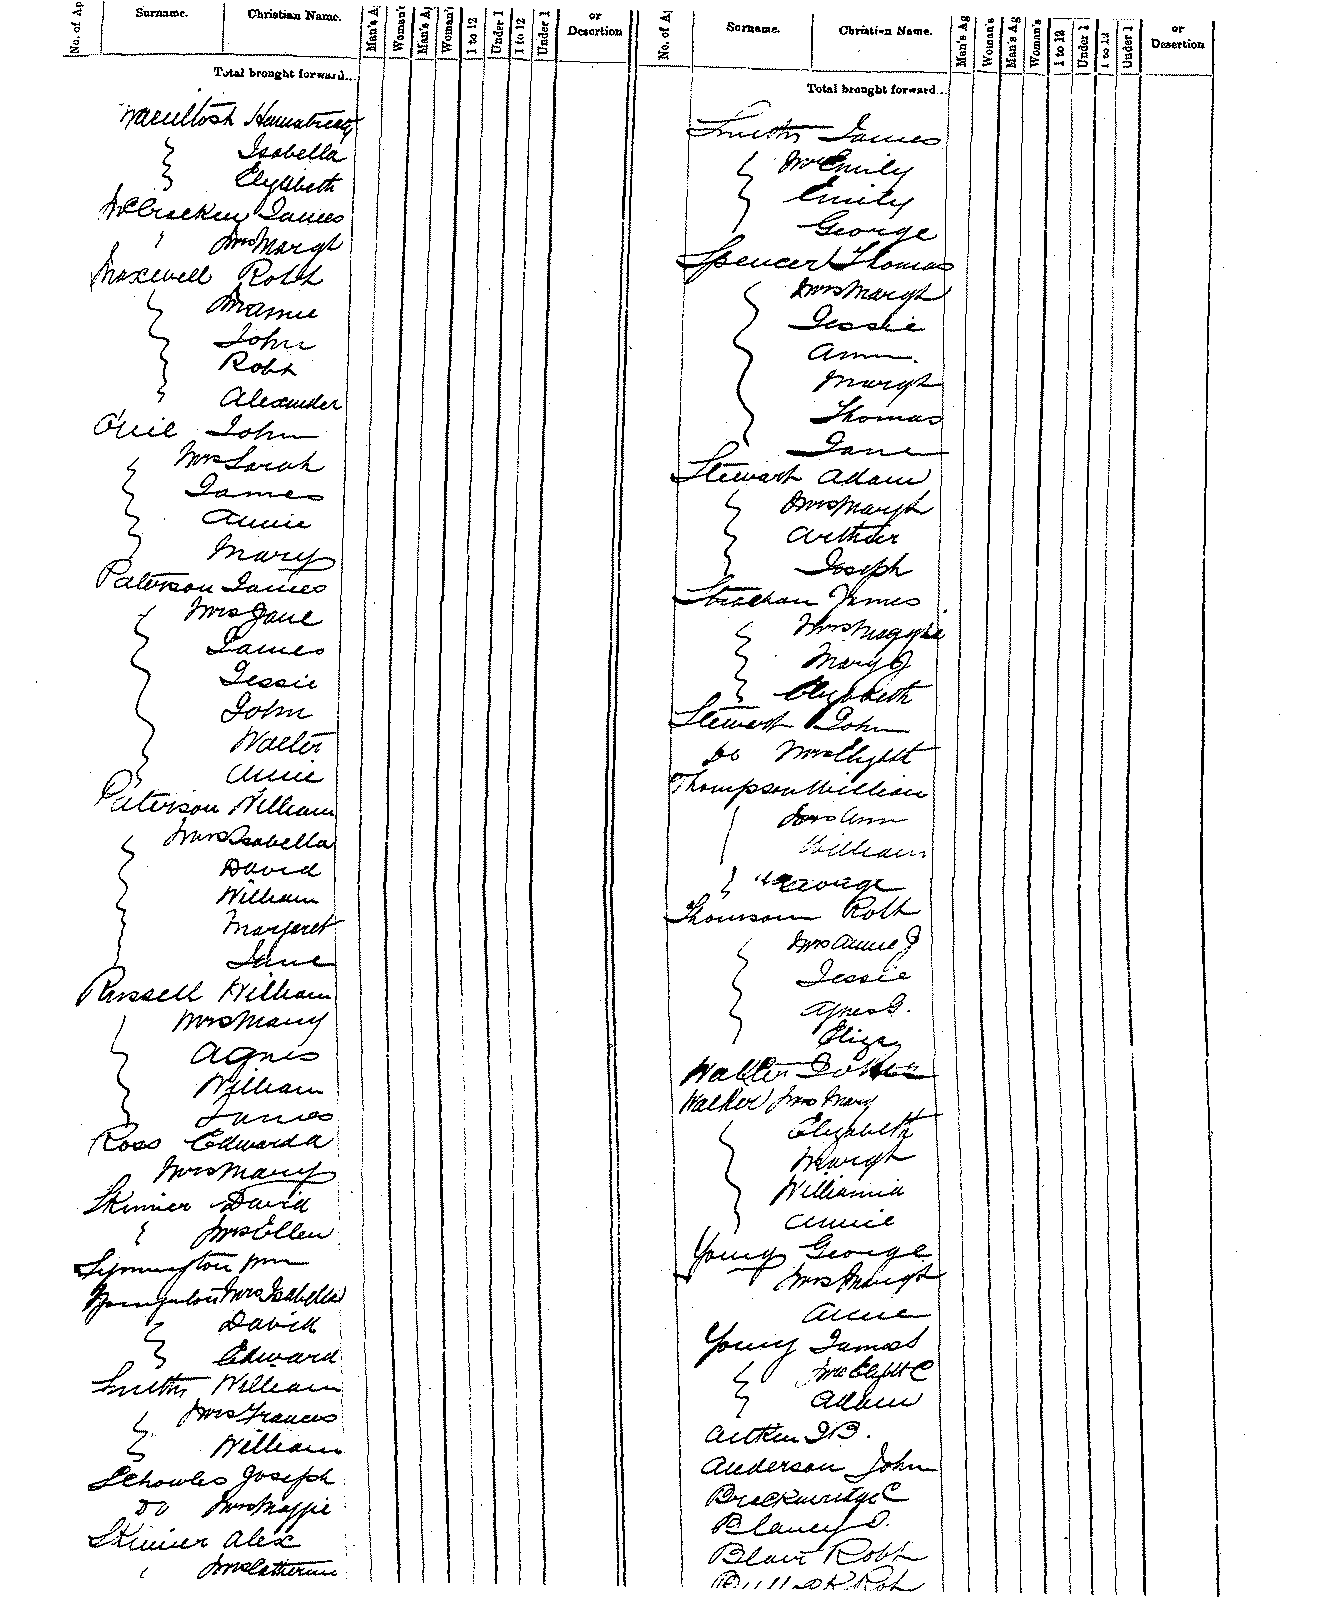 No. of Ap Surname. Christian Name. Man's Ag Woman's Man's Ag Woman's 1 to 12 Under 1 1 to 12 Under 1 or Desertion
Total brought forward..
Isabella
Elyabeth
McCracken James
" Mrs Margt
Maxwell Robt
Mamie
John
Robt
Alexander
John
Mrs Sarah
James
Annie
Mary
Paterson James
Mrs Jane
James
Jessie
John
Walter
Annie
Paterson William
Mrs Isabella
David
William
Margaret
Jane
Russell William
Mrs Mary
Agnes
William
James
Ross Edward
Mrs Mary
Skinner David
Mrs Ellen
Symington Wm
Mrs Isabella
David
Edward
Smith William
Mrs Frances
William
Schowles Joseph
Do Mrs Maggie
Skinner Alex
Mrs Catherine
No. of Ap Surname. Christian Name. Man's Ag Woman's Man's Ag Woman's 1 to 12 Under 1 1 to 12 Under 1 or Desertion
Total brought forward..
Smith James
Mrs Emily
Emily
George
Spencer Thomas
Mrs Margt
Jessie
Ann
Margt
Thomas
Jane
Stewart Adam
Mrs Margt
Arthur
Joseph
Strachan James
Mrs Maggie
Mary J
Elizabeth
Stewart John
Do Mrs Elizbt
Thompson William
Mrs Ann
William
George
Thomson Robt
Mrs Annie J
Jessie
Agnes
Eliza
Walter
Walker Mrs Mary
Elizabeth
Margt
Williamia
Annie
Young George
Mrs Margt
Annie
Young James
Mrs Elizbt C
Adam
Aitken J B.
Anderson John
Breckenridge C
Blaney D.
Blair Robt
Robt